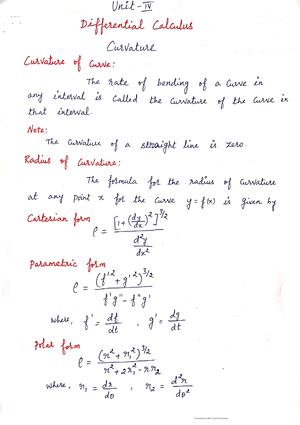 Unit - IV
Differential Calculus
Curvature
Curvature of Curve:
The rate of bending of a Curve in
any interval is Called the Curvature of the Curve in
that interval.
Note:
The Curvature of a straight line is zero.
Radius of Curvature:
The formula for the radius of Curvature
at any point x for the Curve y = f(x) is given by
Cartesian form
ρ = [1 + (dy/dx)²]^3/2 / (d²y/dx²)
Parametric form
ρ = (f'² + g'²)^3/2 / (f'g'' - f''g')
where, f' = df/dt , g' = dg/dt
Polar form
ρ = (r² + r₁²)^3/2 / (r² + 2r₁² - r r₂)
where, r₁ = dr/dθ , r₂ = d²r/dθ²